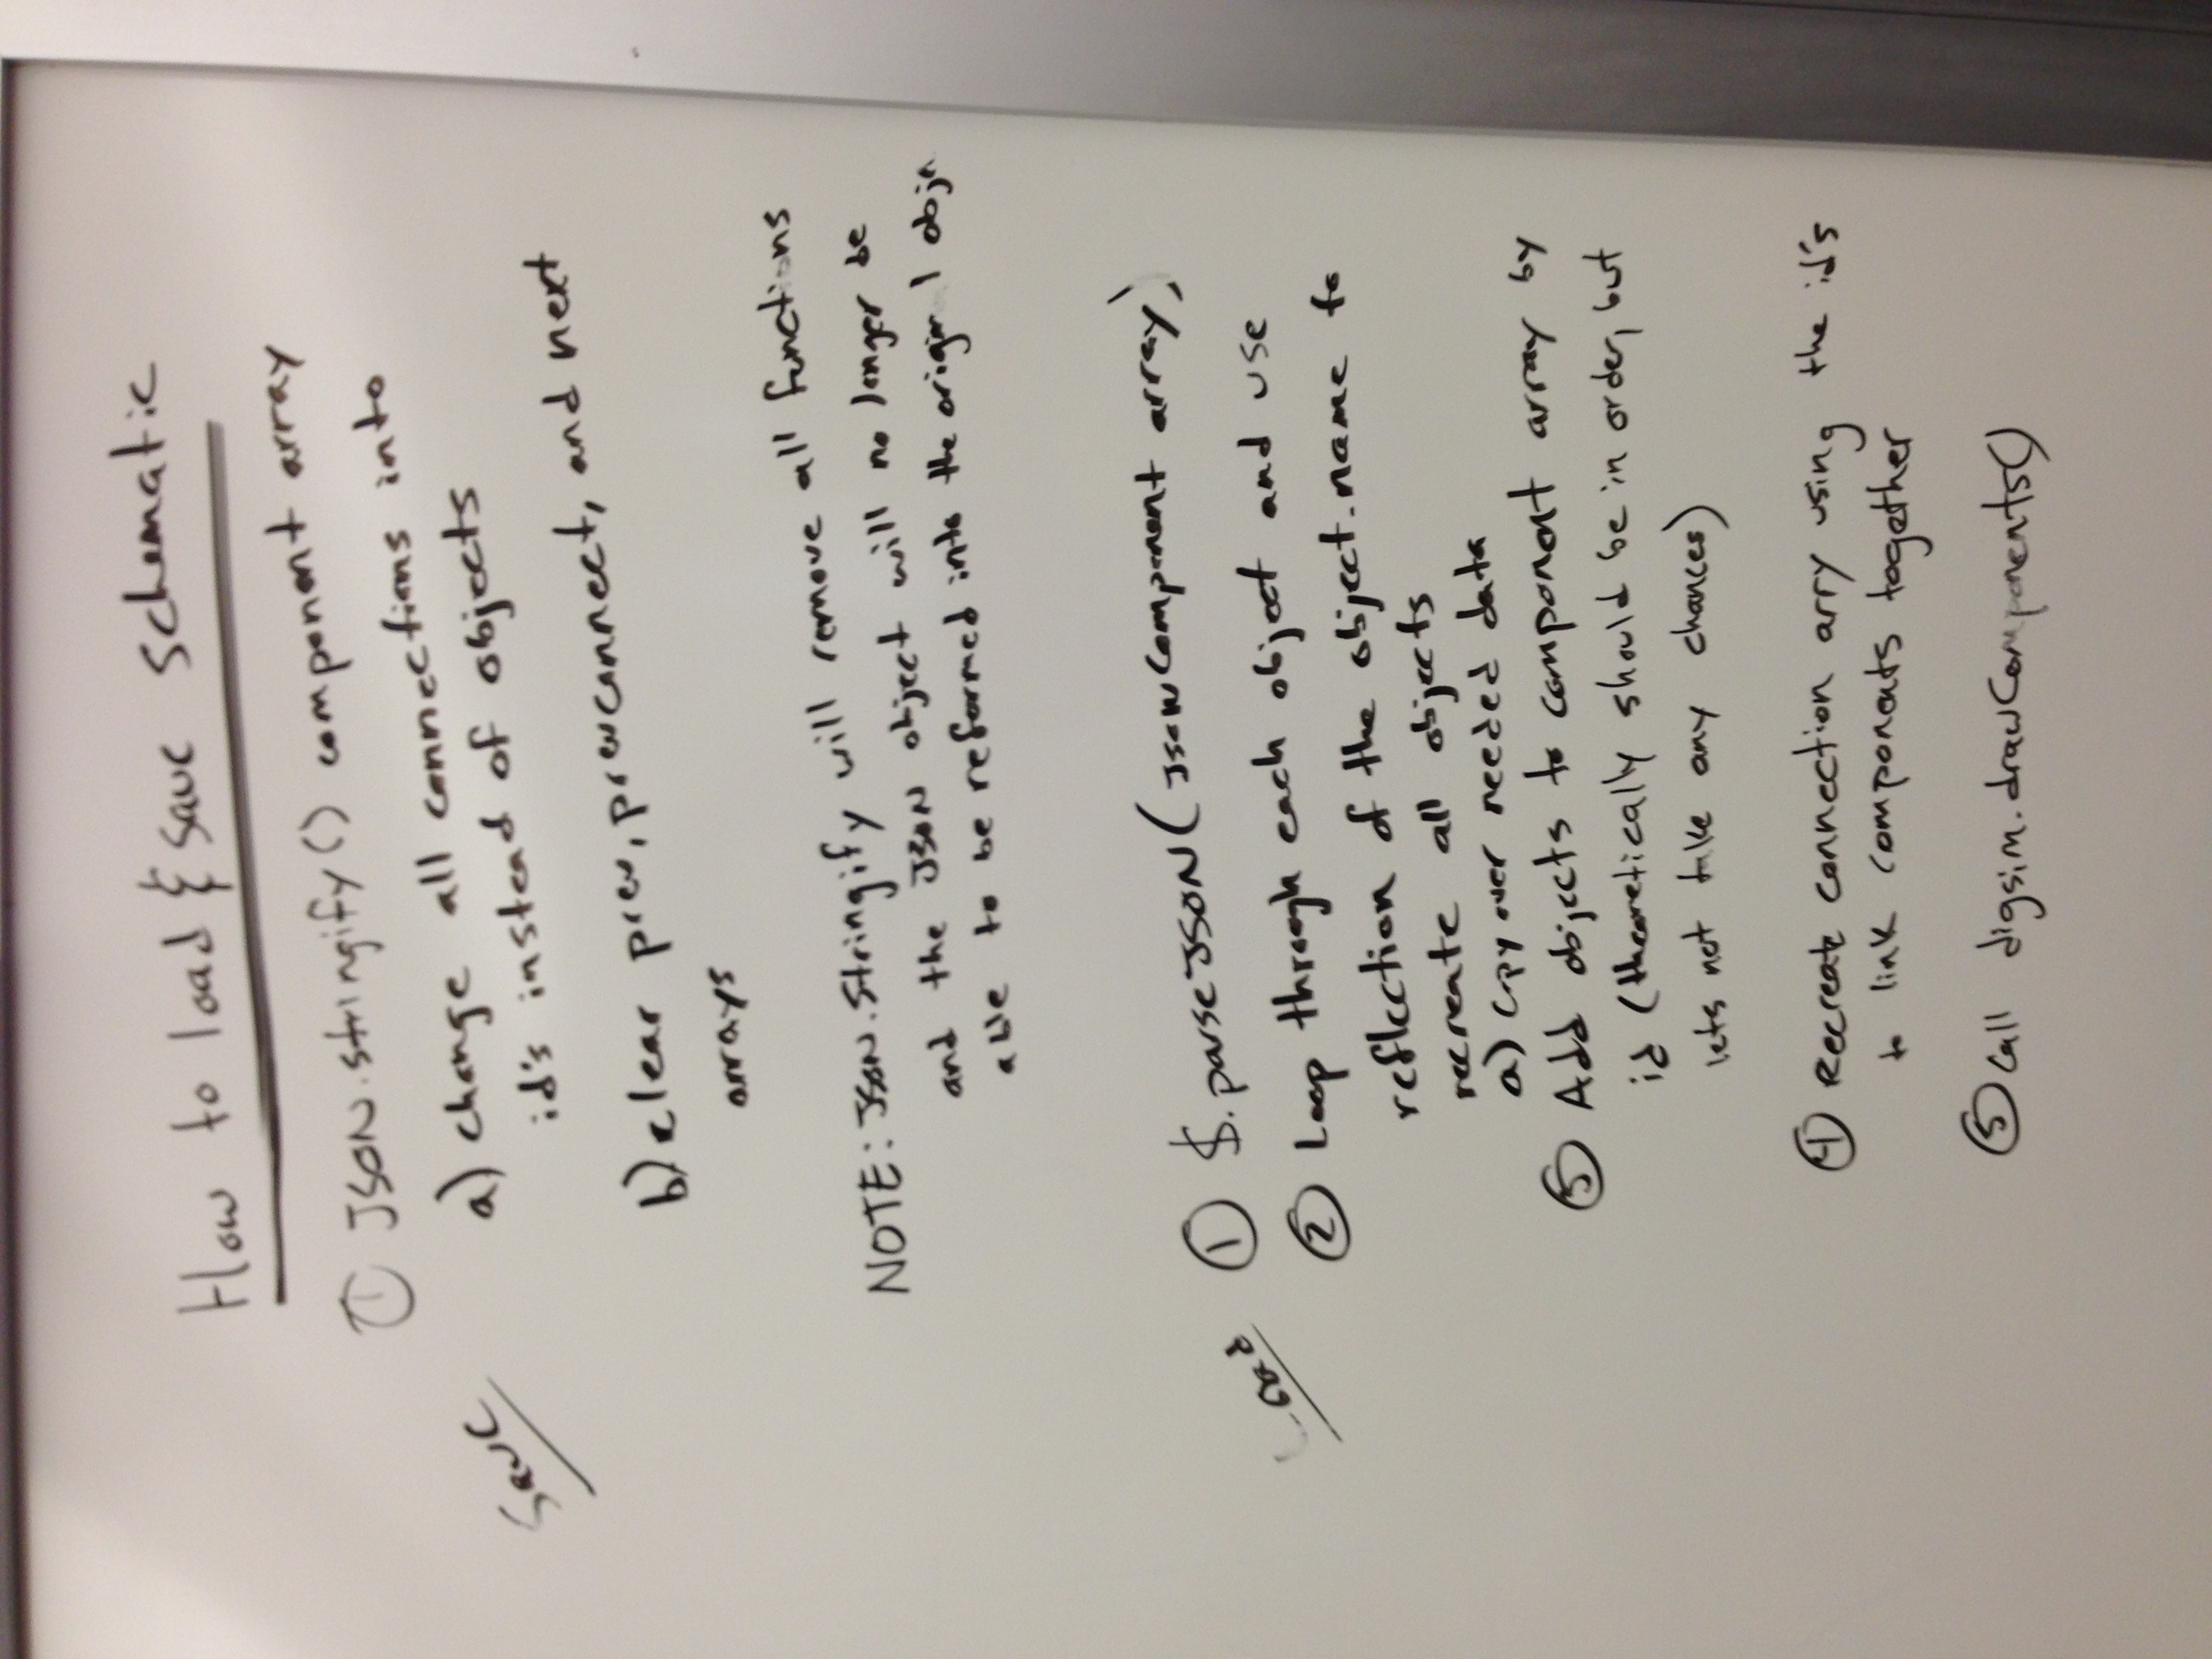 How to load & save schematic
① JSON.stringify() component array
a) change all connections into
id's instead of objects
Save
b) clear prev, prevconnect, and next
arrays
NOTE: JSON.Stringify will remove all functions
and the JSON object will no longer be
able to be reformed into the origin l obje
① $.parseJSON(JSONComponent array)
Load
② Loop through each object and use
reflection of the object.name to
recreate all objects
a) copy over needed data
③ Add objects to component array by
id (theoretically should be in order, but
lets not take any chances)
④ Recreate connection arry using the id's
to link components together
⑤ Call digsim.drawComponents()